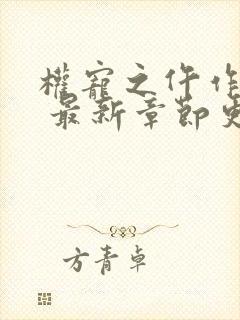 權寵之仵作
最新章節
方青卓